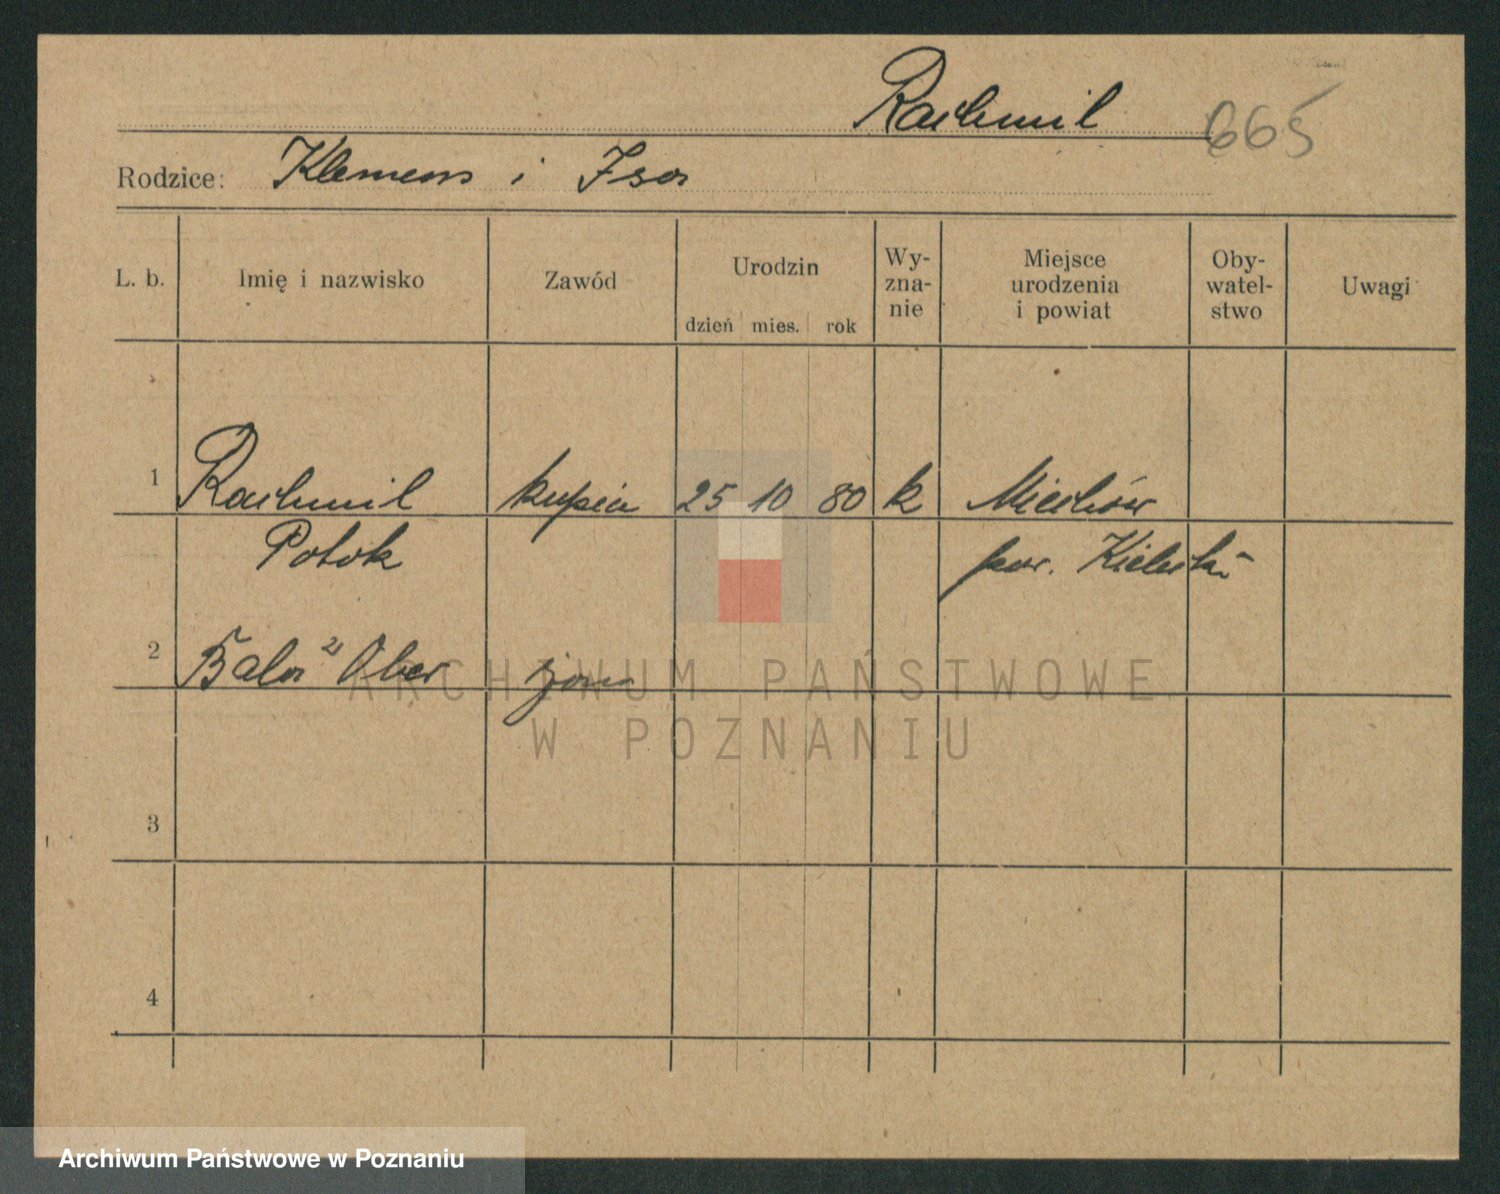 Rachmil 665
Rodzice: Klemens i Isa
L. b. Imię i nazwisko Zawód Urodzin dzień mies. rok Wy-zna-nie Miejsce urodzenia i powiat Oby-watel-stwo Uwagi
1 Rachmil kupiec 25 10 80 k Miechów
Potok pow. Kielecki
2 Ober żona
3
4
ARCHIWUM PAŃSTWOWE
W POZNANIU
Archiwum Państwowe w Poznaniu